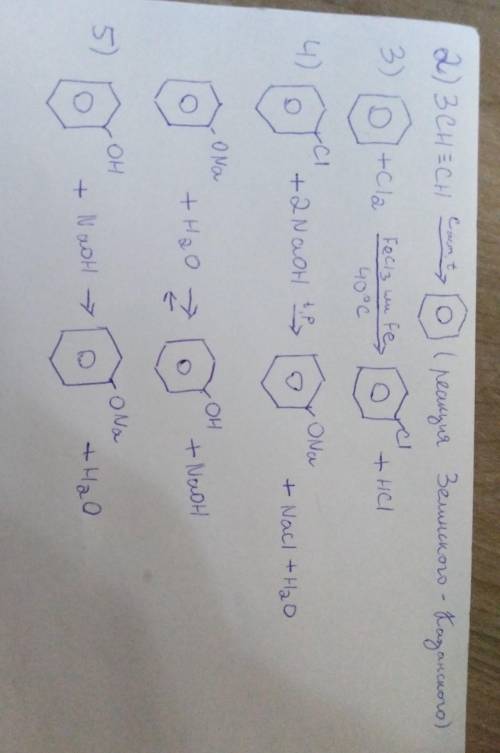 2) 3CH≡CH Cакт, t → (реакция Зелинского - Казанского)
3) + Cl2 FeCl3 или Fe 40°C → Cl + HCl
4) Cl + 2NaOH t, p → ONa + NaCl + H2O
ONa + H2O ⇄ OH + NaOH
5) OH + NaOH → ONa + H2O